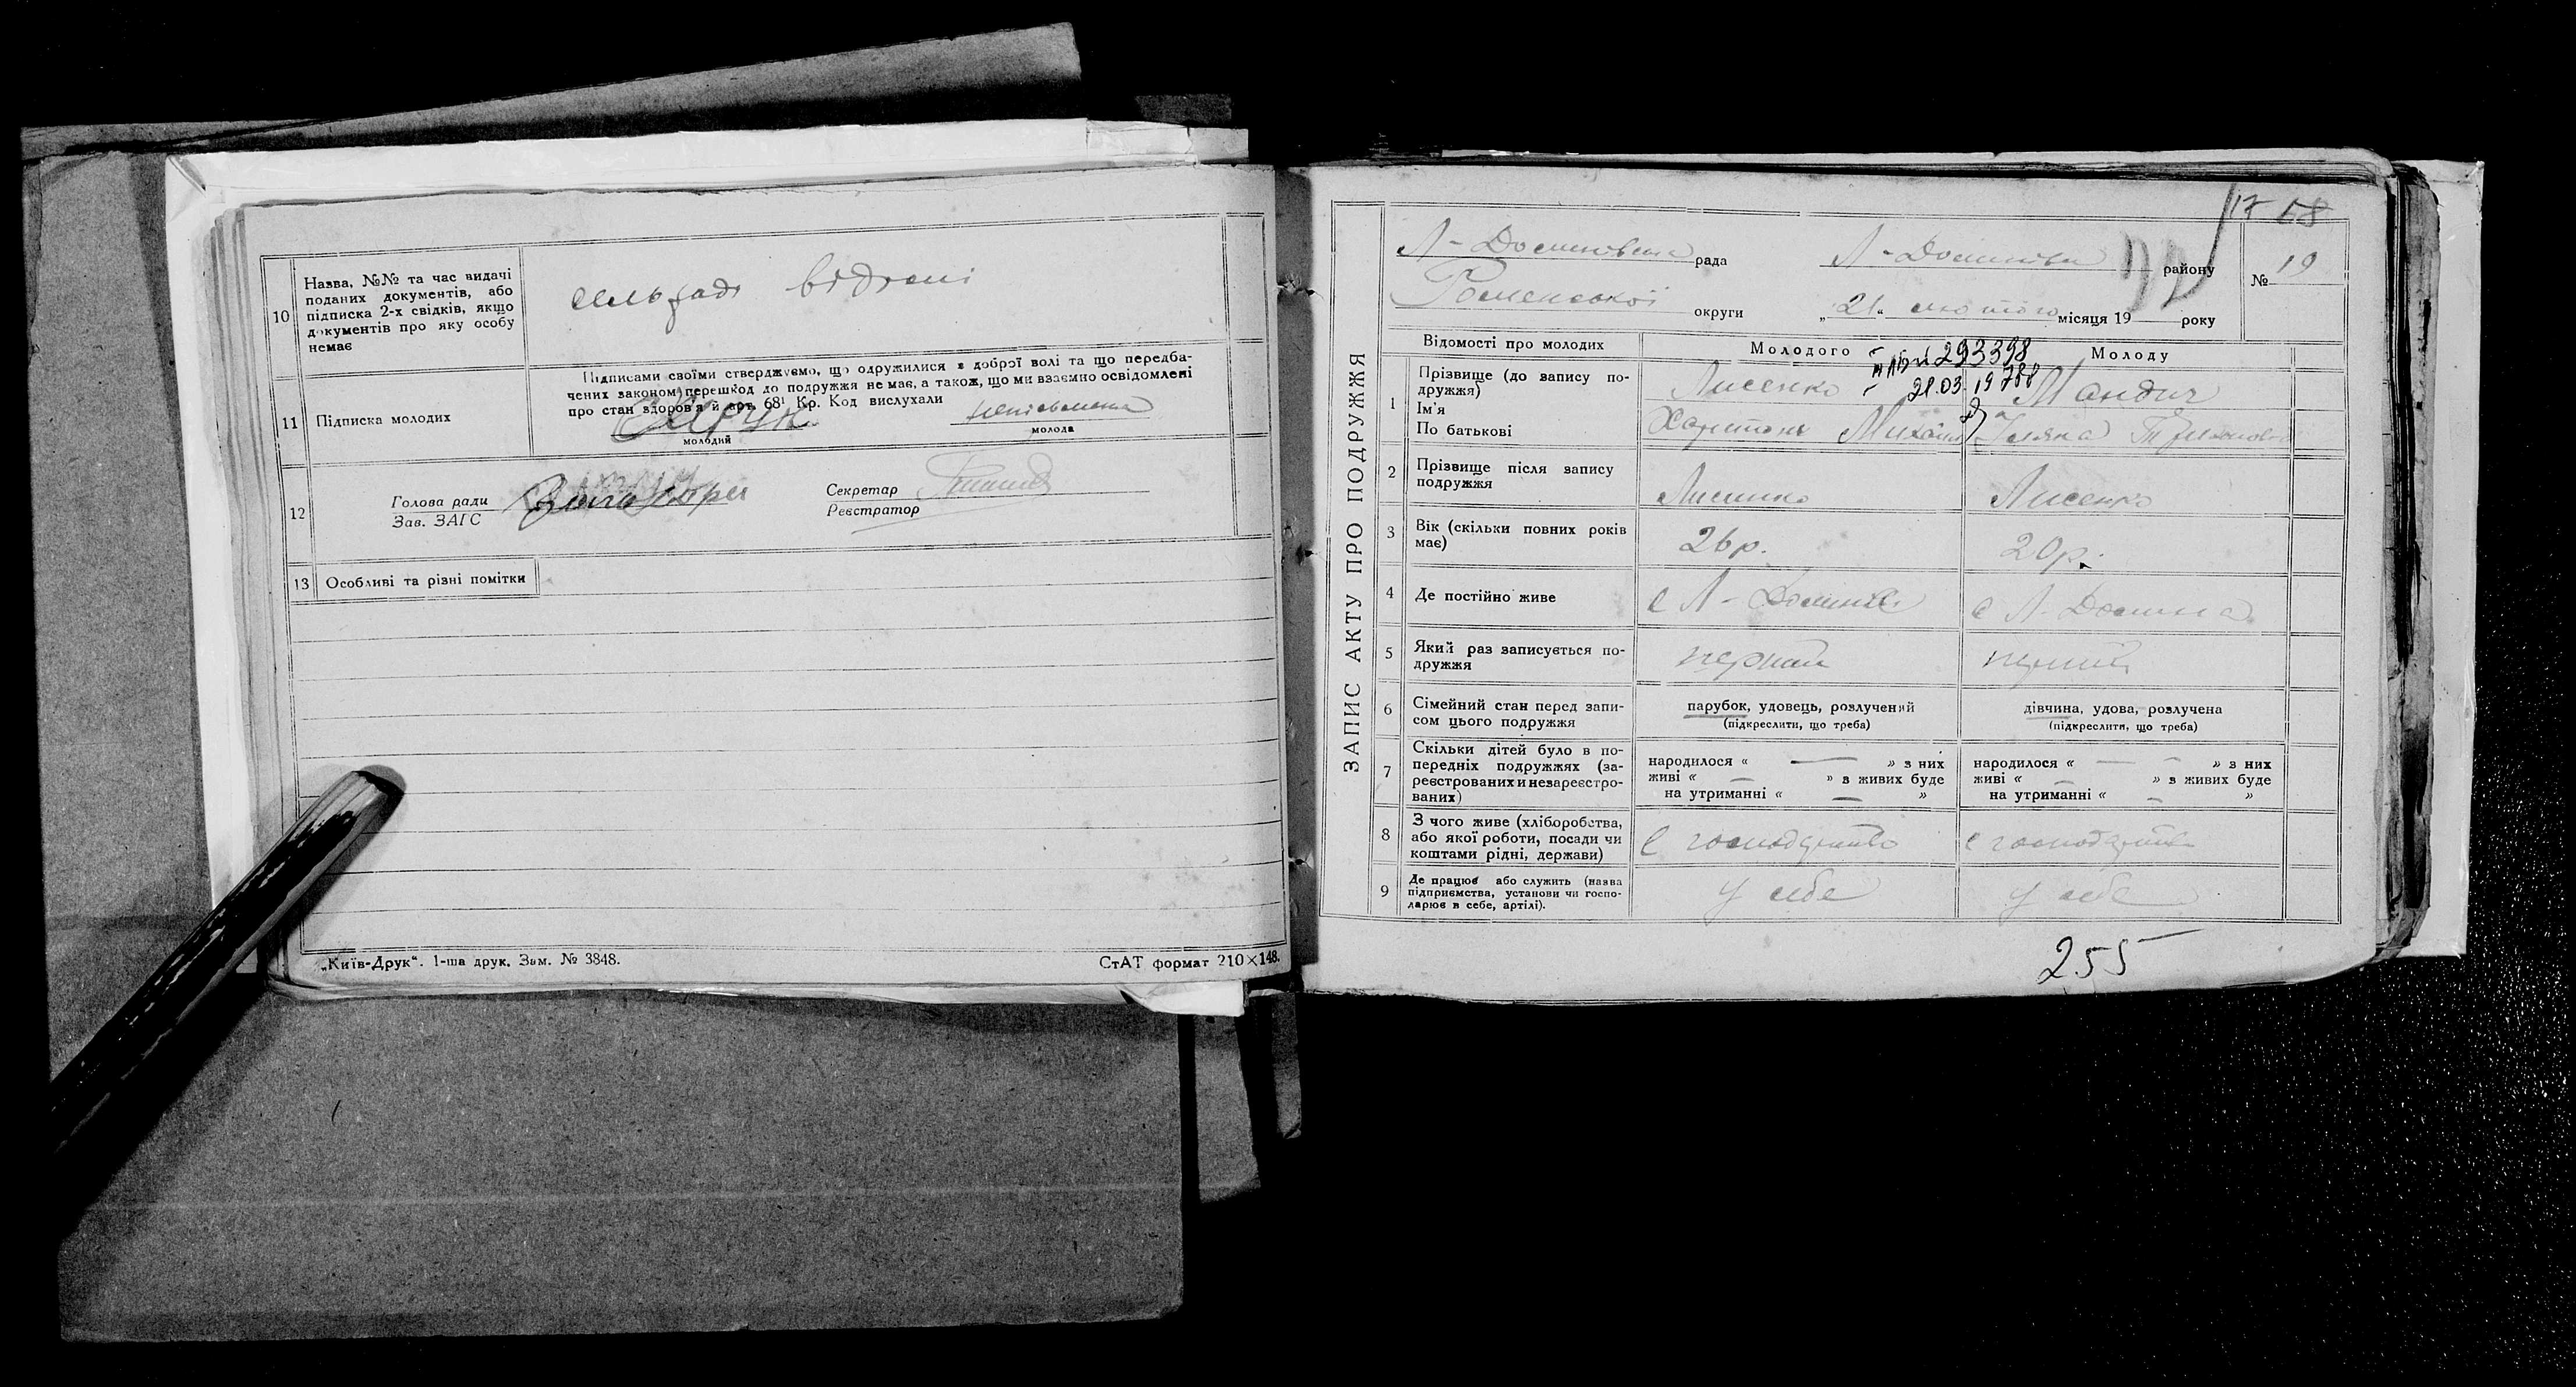 10
Назва, №№ та час видачі
поданих документів, або
підписка 2-х свідків, якщо
документів про яку особу
немає
відомі
11
Підписка молодих
Підписами своїми стверджуємо, що одружилися з доброї волі та що передба-
чених законом перешкод до подружжя не має, а також, що ми взаємно освідомлені
про стан здоров'я й арт. 68¹ Кр. Код вислухали
неписьменна
молодий
молода
12
Голова ради
Зав. ЗАГС
Секретар
Реєстратор
13
Особливі та різні помітки
„Київ-Друк“. 1-ша друк. Зам. № 3848.
СтАТ формат 210×148.
ЗАПИС АКТУ ПРО ПОДРУЖЖЯ
17 18
рада
району
№ 19
Роменської округи
„21“ лютого місяця 19 року
Відомості про молодих
Молодого
Молоду
293398
21.03.19788
1
Прізвище (до запису по-
дружжя)
Ім'я
По батькові
Лисенко
Харитон Михайл
Мандич
2
Прізвище після запису
подружжя
Лисенко
Лисенко
3
Вік (скільки повних років
має)
26р.
20р.
4
Де постійно живе
с Л-
с Л.
5
Який раз записується по-
дружжя
перший
перший
6
Сімейний стан перед запи-
сом цього подружжя
парубок, удовець, розлучений
(підкреслити, що треба)
дівчина, удова, розлучена
(підкреслити, що треба)
7
Скільки дітей було в по-
передніх подружжях (за-
реєстрованих и незареєстро-
ваних)
народилося « — » з них
живі « — » з живих буде
на утриманні « — »
народилося « — » з них
живі « — » з живих буде
на утриманні « — »
8
З чого живе (хліборобства,
або якої роботи, посади чи
коштами рідні, держави)
9
Де працює або служить (назва
підприємства, установи чи госпо-
дарює в себе, артілі).
у себе
у себе
255